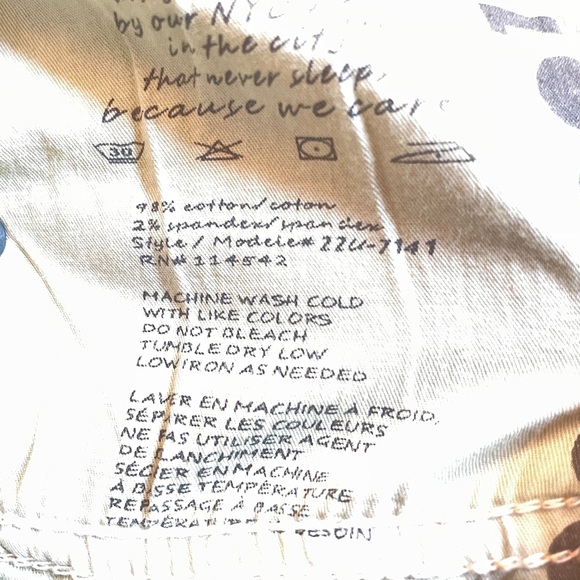 by our NYC
in the cit
that never sleep,
because we care
30
98% cotton/coton
2% spandex/spandex
Style / Modele# 22U-7141
RN# 114542
MACHINE WASH COLD
WITH LIKE COLORS
DO NOT BLEACH
TUMBLE DRY LOW
LOW IRON AS NEEDED
LAVER EN MACHINE A FROID,
SÉPARER LES COULEURS
NE PAS UTILISER AGENT
DE BLANCHIMENT
SÉCHER EN MACHINE
À BASSE TEMPÉRATURE
REPASSAGE À BASSE
TEMPÉRATURE BESOIN